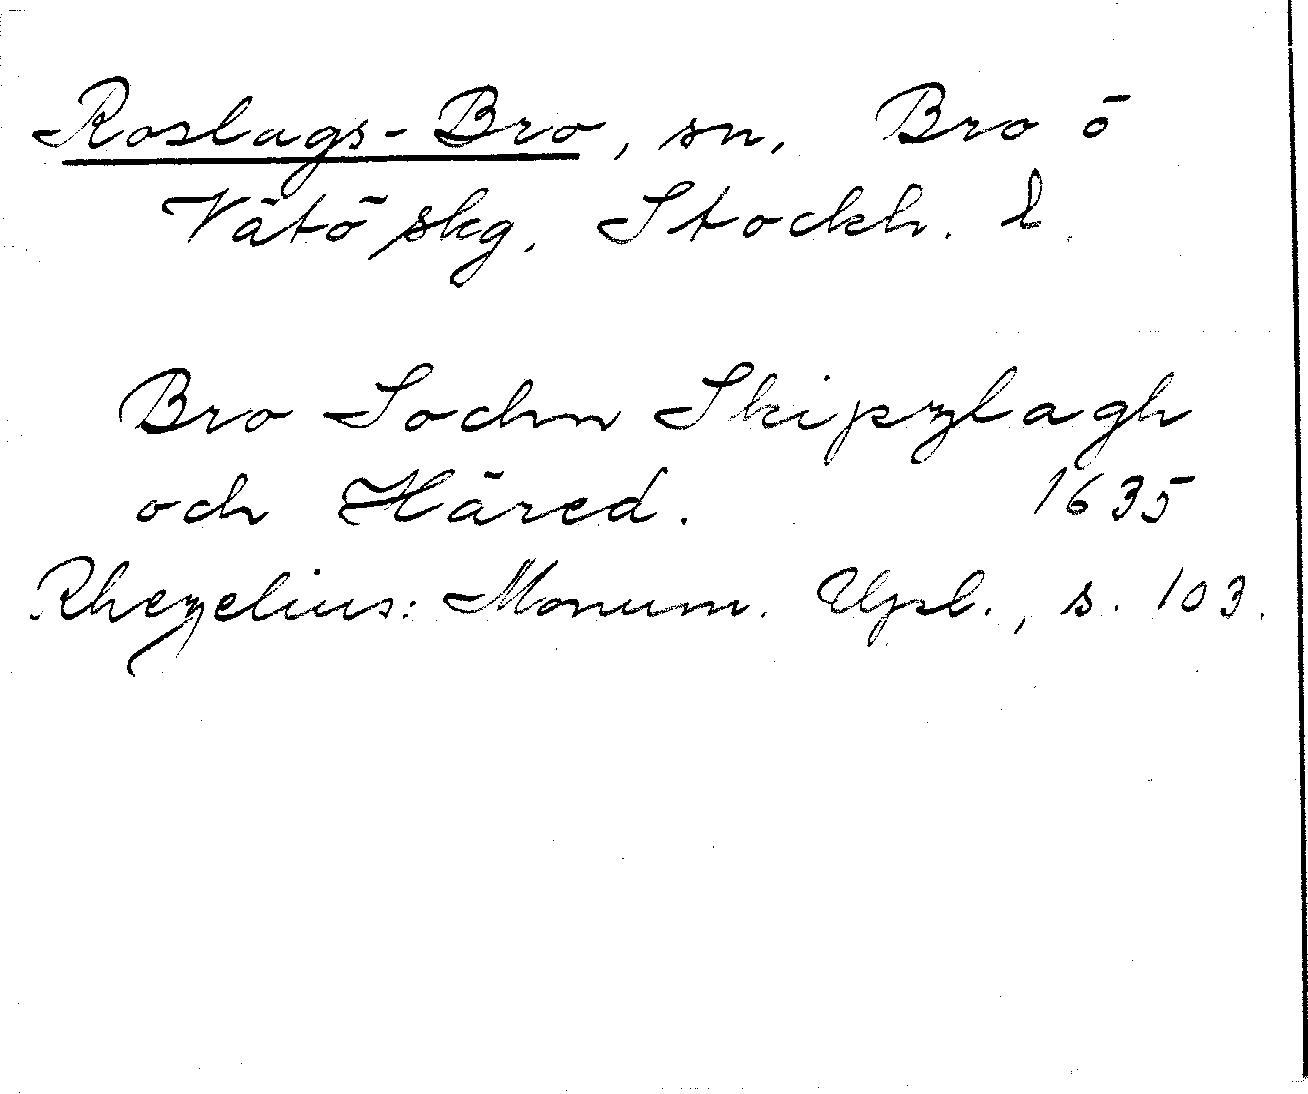 Roslags-Bro, sn, Bro ö
Vätö skg. Stockh. l.
Bro Sochn Skipzlagh
och Häred. 1635
Rhezelius: Monum. Upl., s. 103.